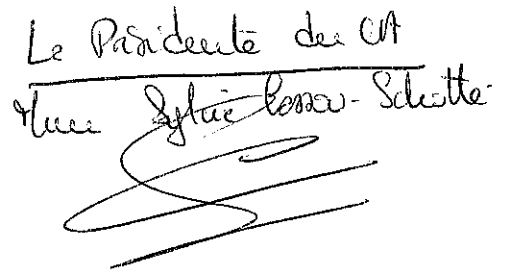 La Présidente du CA
Mme Sylvie - Schotte